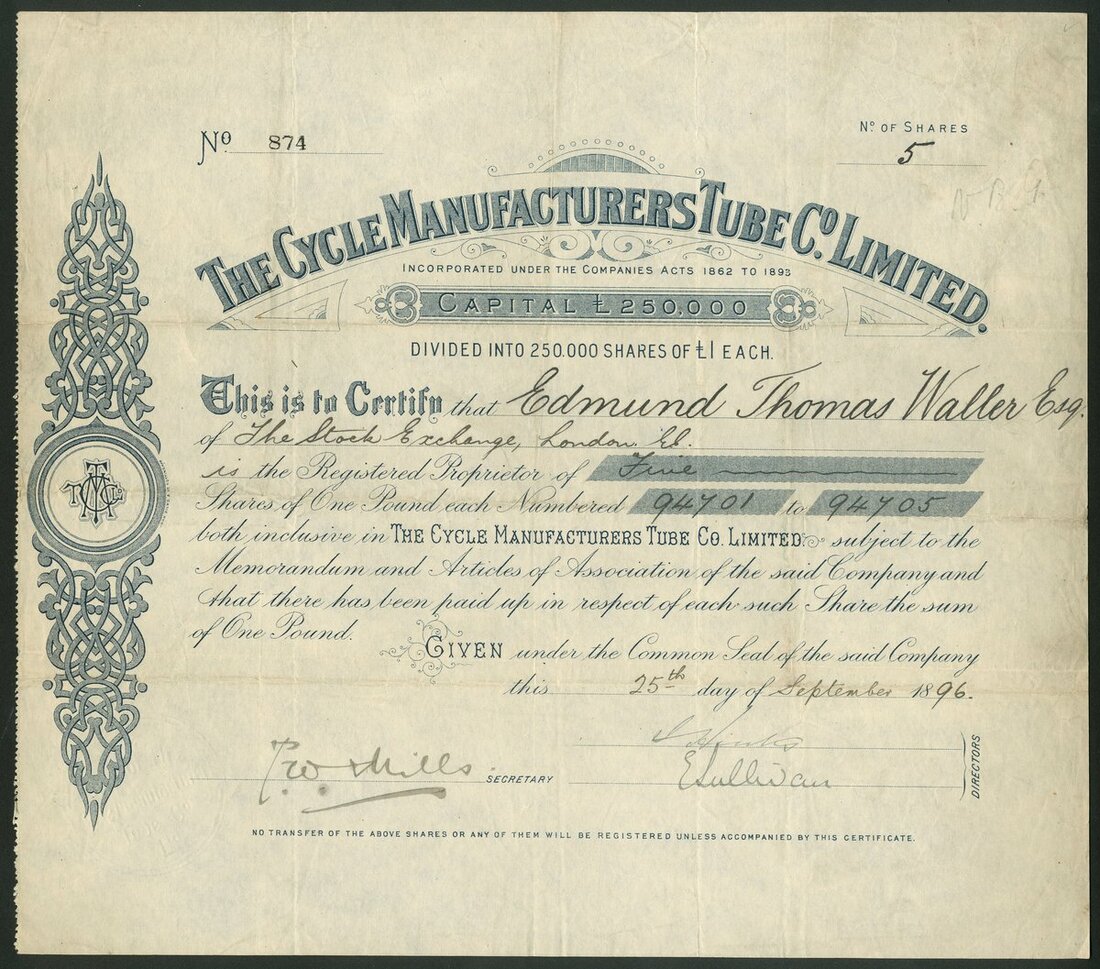 No 874
No. OF SHARES
5
THE CYCLE MANUFACTURERS TUBE Co. LIMITED.
INCORPORATED UNDER THE COMPANIES ACTS 1862 TO 1893
CAPITAL £250.000
DIVIDED INTO 250.000 SHARES OF £1 EACH.
This is to Certify that Edmund Thomas Waller Esq.
of The Stock Exchange, London. EC.
is the Registered Proprietor of Five
Shares of One Pound each Numbered 94701 to 94705
both inclusive in THE CYCLE MANUFACTURERS TUBE CO. LIMITED. subject to the
Memorandum and Articles of Association of the said Company and
that there has been paid up in respect of each such Share the sum
of One Pound.
GIVEN under the Common Seal of the said Company
this 25th day of September 1896.
Hinks
F. W. Mills SECRETARY
E Sullivan
DIRECTORS
NO TRANSFER OF THE ABOVE SHARES OR ANY OF THEM WILL BE REGISTERED UNLESS ACCOMPANIED BY THIS CERTIFICATE.